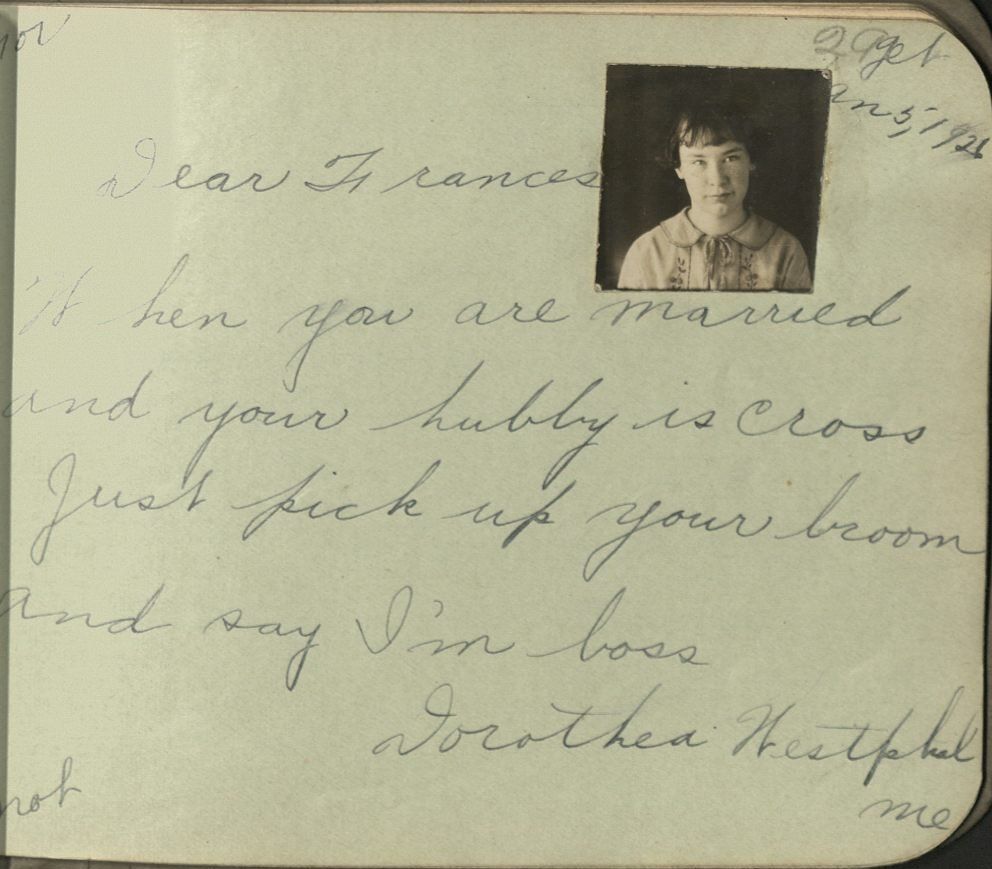 29 get
Dear Frances
When you are married
and your hubby is cross
Just pick up your broom
and say I'm boss
Dorothea Westphal
not me